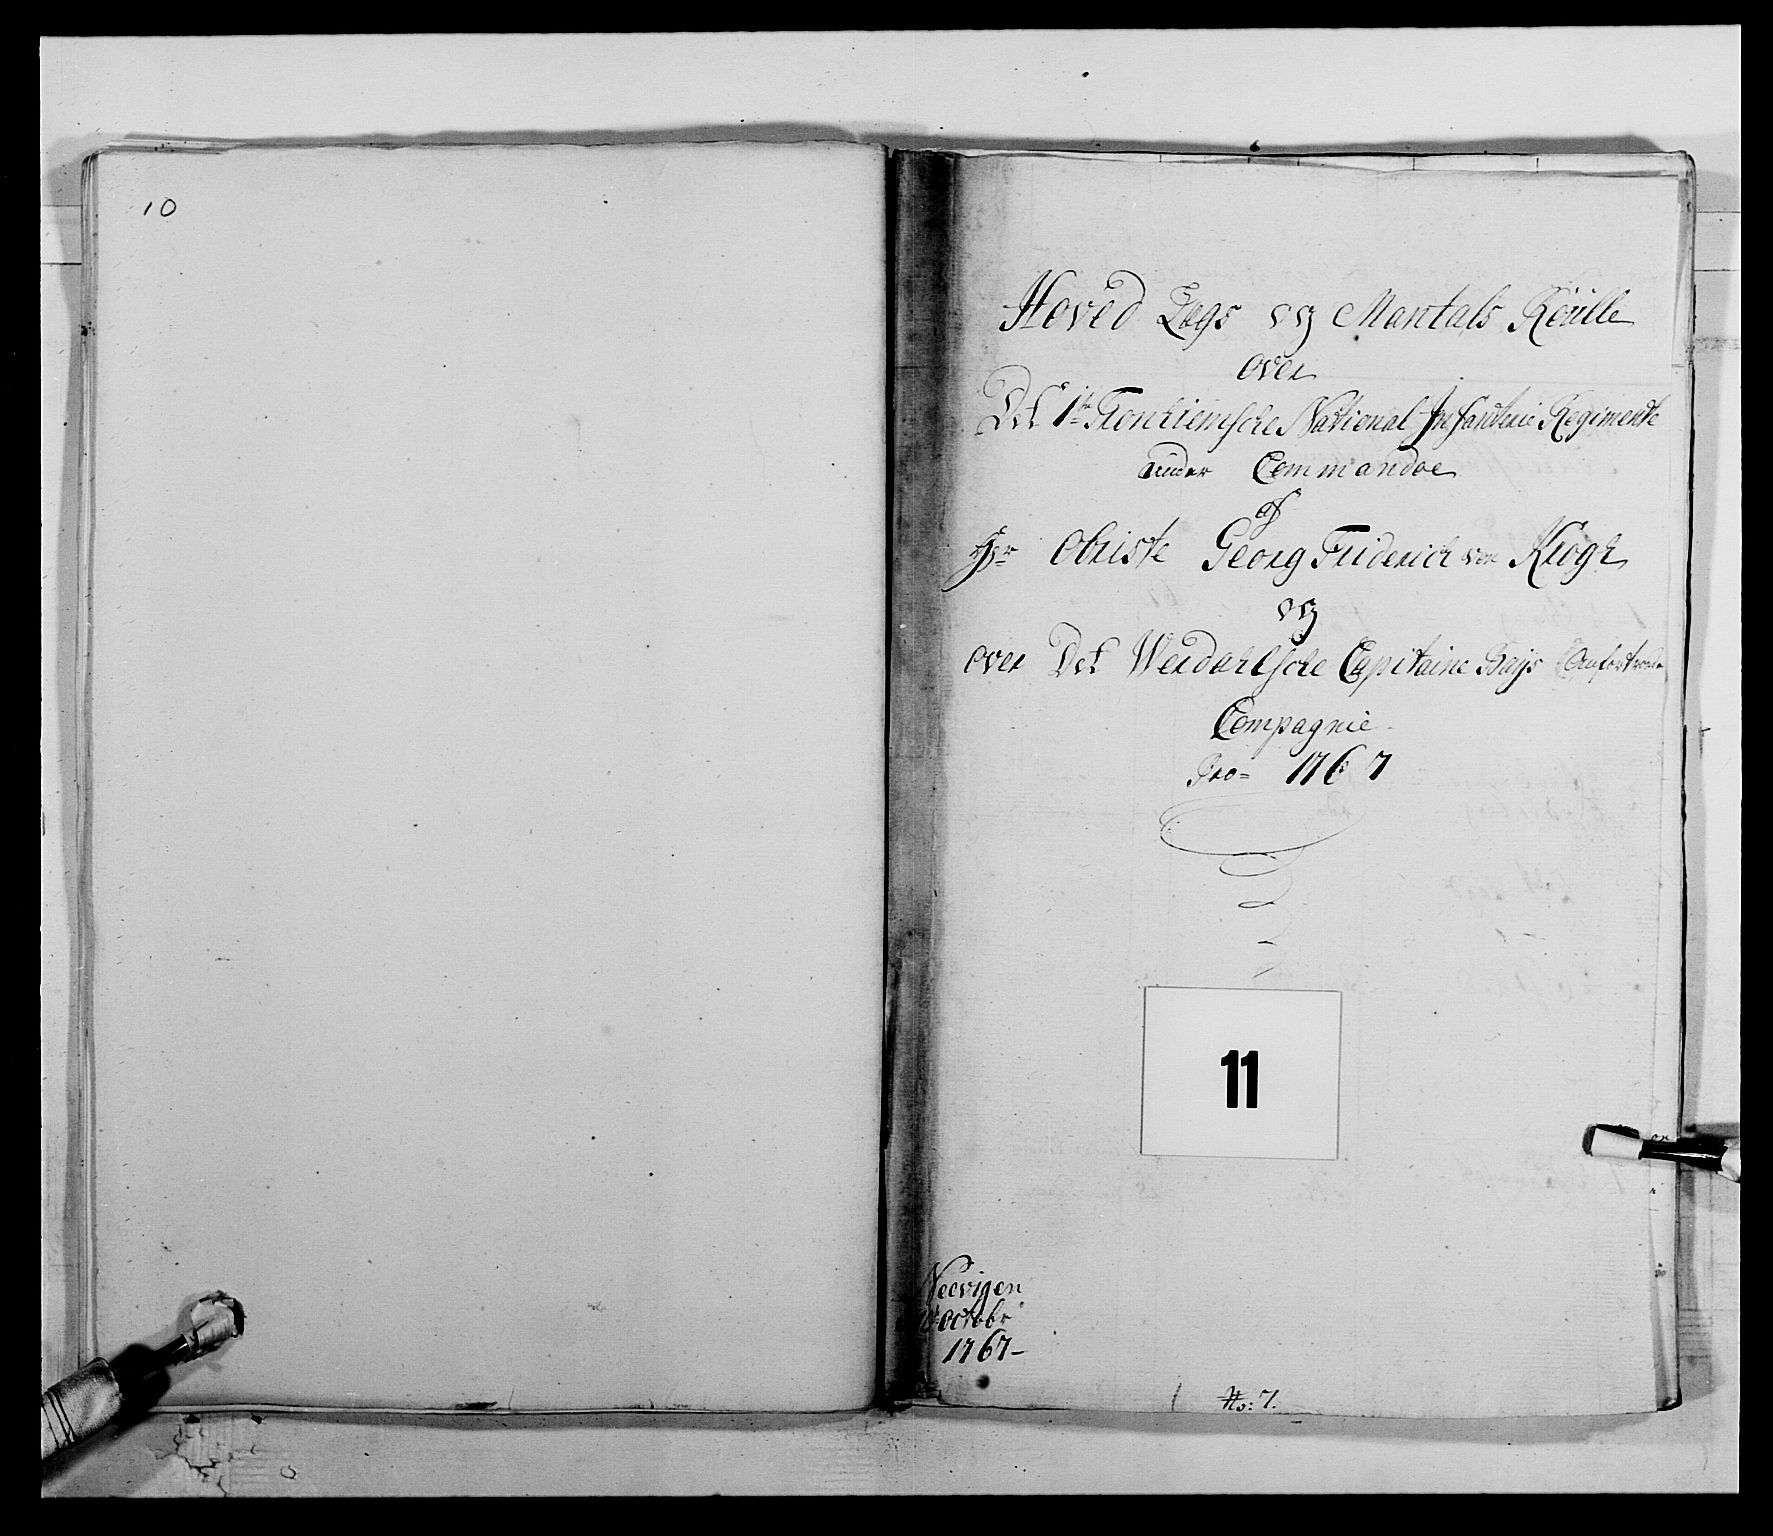 10
Hoved Lægs og Mantals Roulle
over
Det 1te Tronhiemsche National Infanterie Regimente
under Commandoe
af
Hr Obriste Georg Friderich von Krogh
og
over Det Werdahlsche Capitaine Bays
Compagnie
Pro= 1767
11
Octobr
1767-
No: 7.